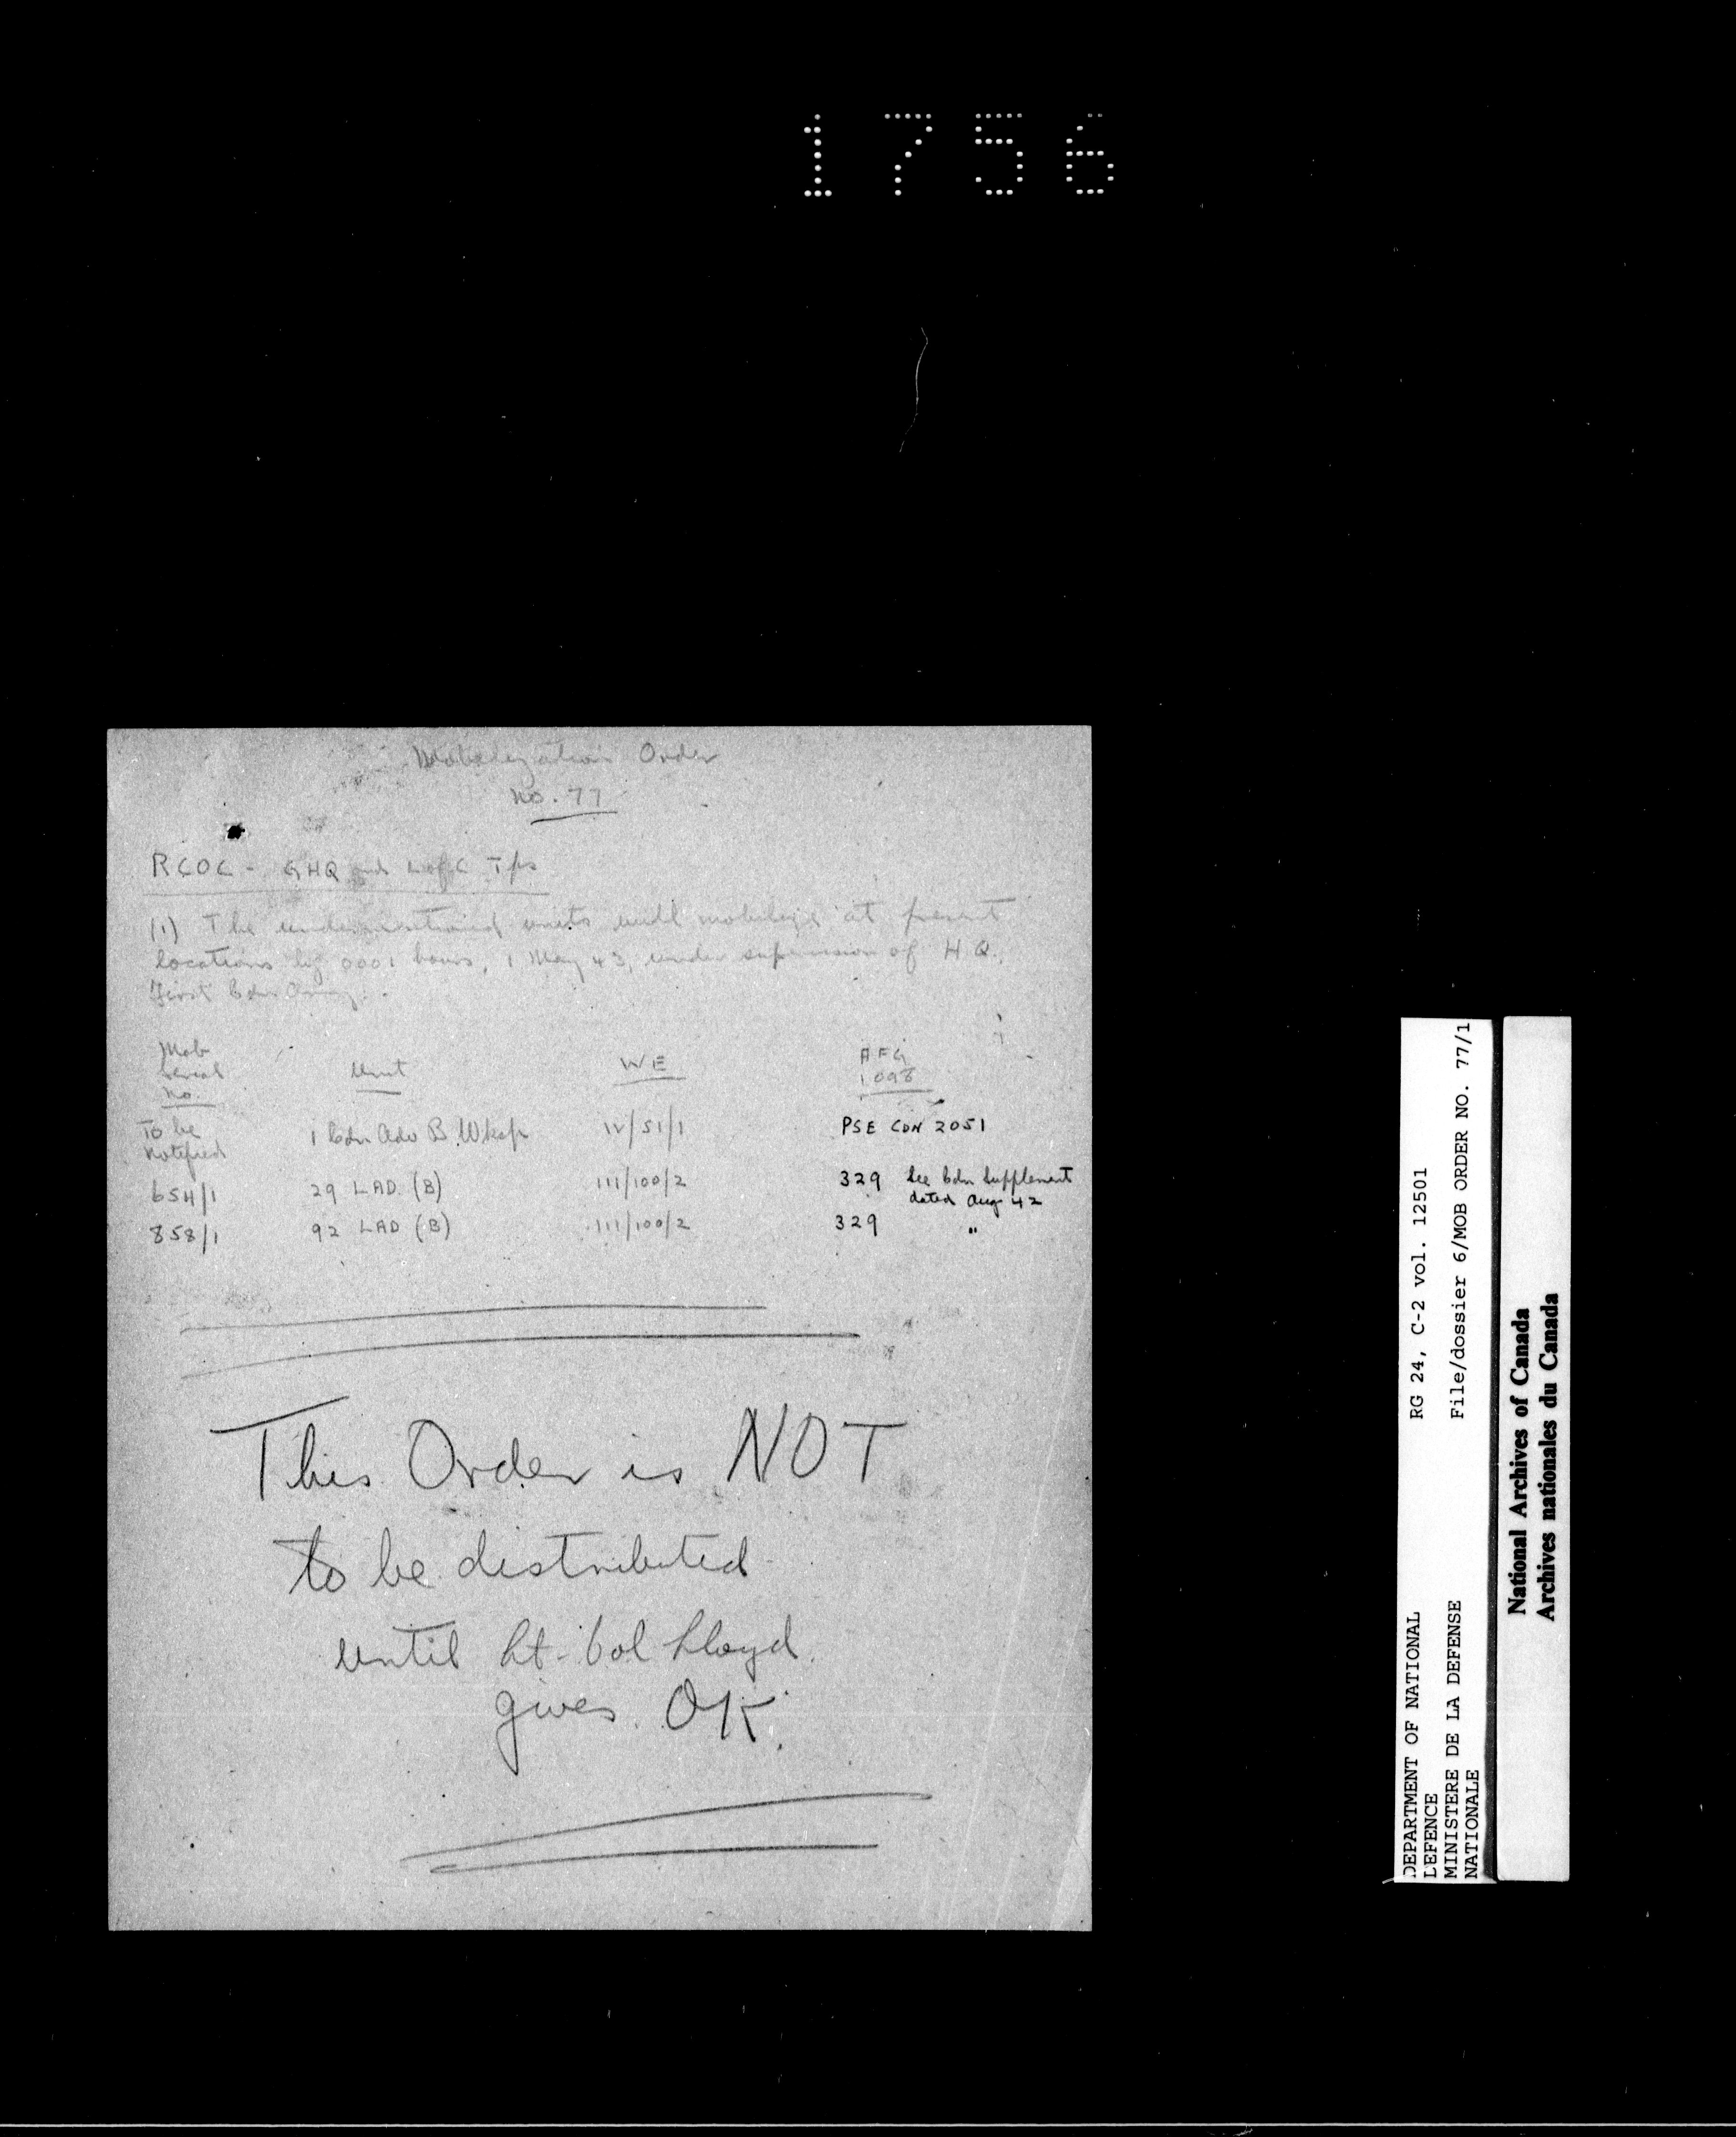 1756
Mobilization Order
No. 77
RCOC - GHQ and L of C Tps
(1) The undermentioned units will mobilize at present
locations by 0001 hours, 1 May 43, under supervision of H.Q.,
First Cdn Army.
Mob Serial No. Unit WE AFG 1098
To be Notified 1 Cdn Adv B Wksp IV/51/1 PSE CDN 2051
654/1 29 LAD (B) 111/100/2 329 See Cdn Supplement dated Aug 42
858/1 92 LAD (B) 111/100/2 329 "
This Order is NOT
to be distributed
until Lt-Col Lloyd
gives OK.
DEPARTMENT OF NATIONAL RG 24, C-2 vol. 12501
DEFENCE
MINISTERE DE LA DEFENSE File/dossier 6/MOB ORDER NO. 77/1
NATIONALE
National Archives of Canada
Archives nationales du Canada